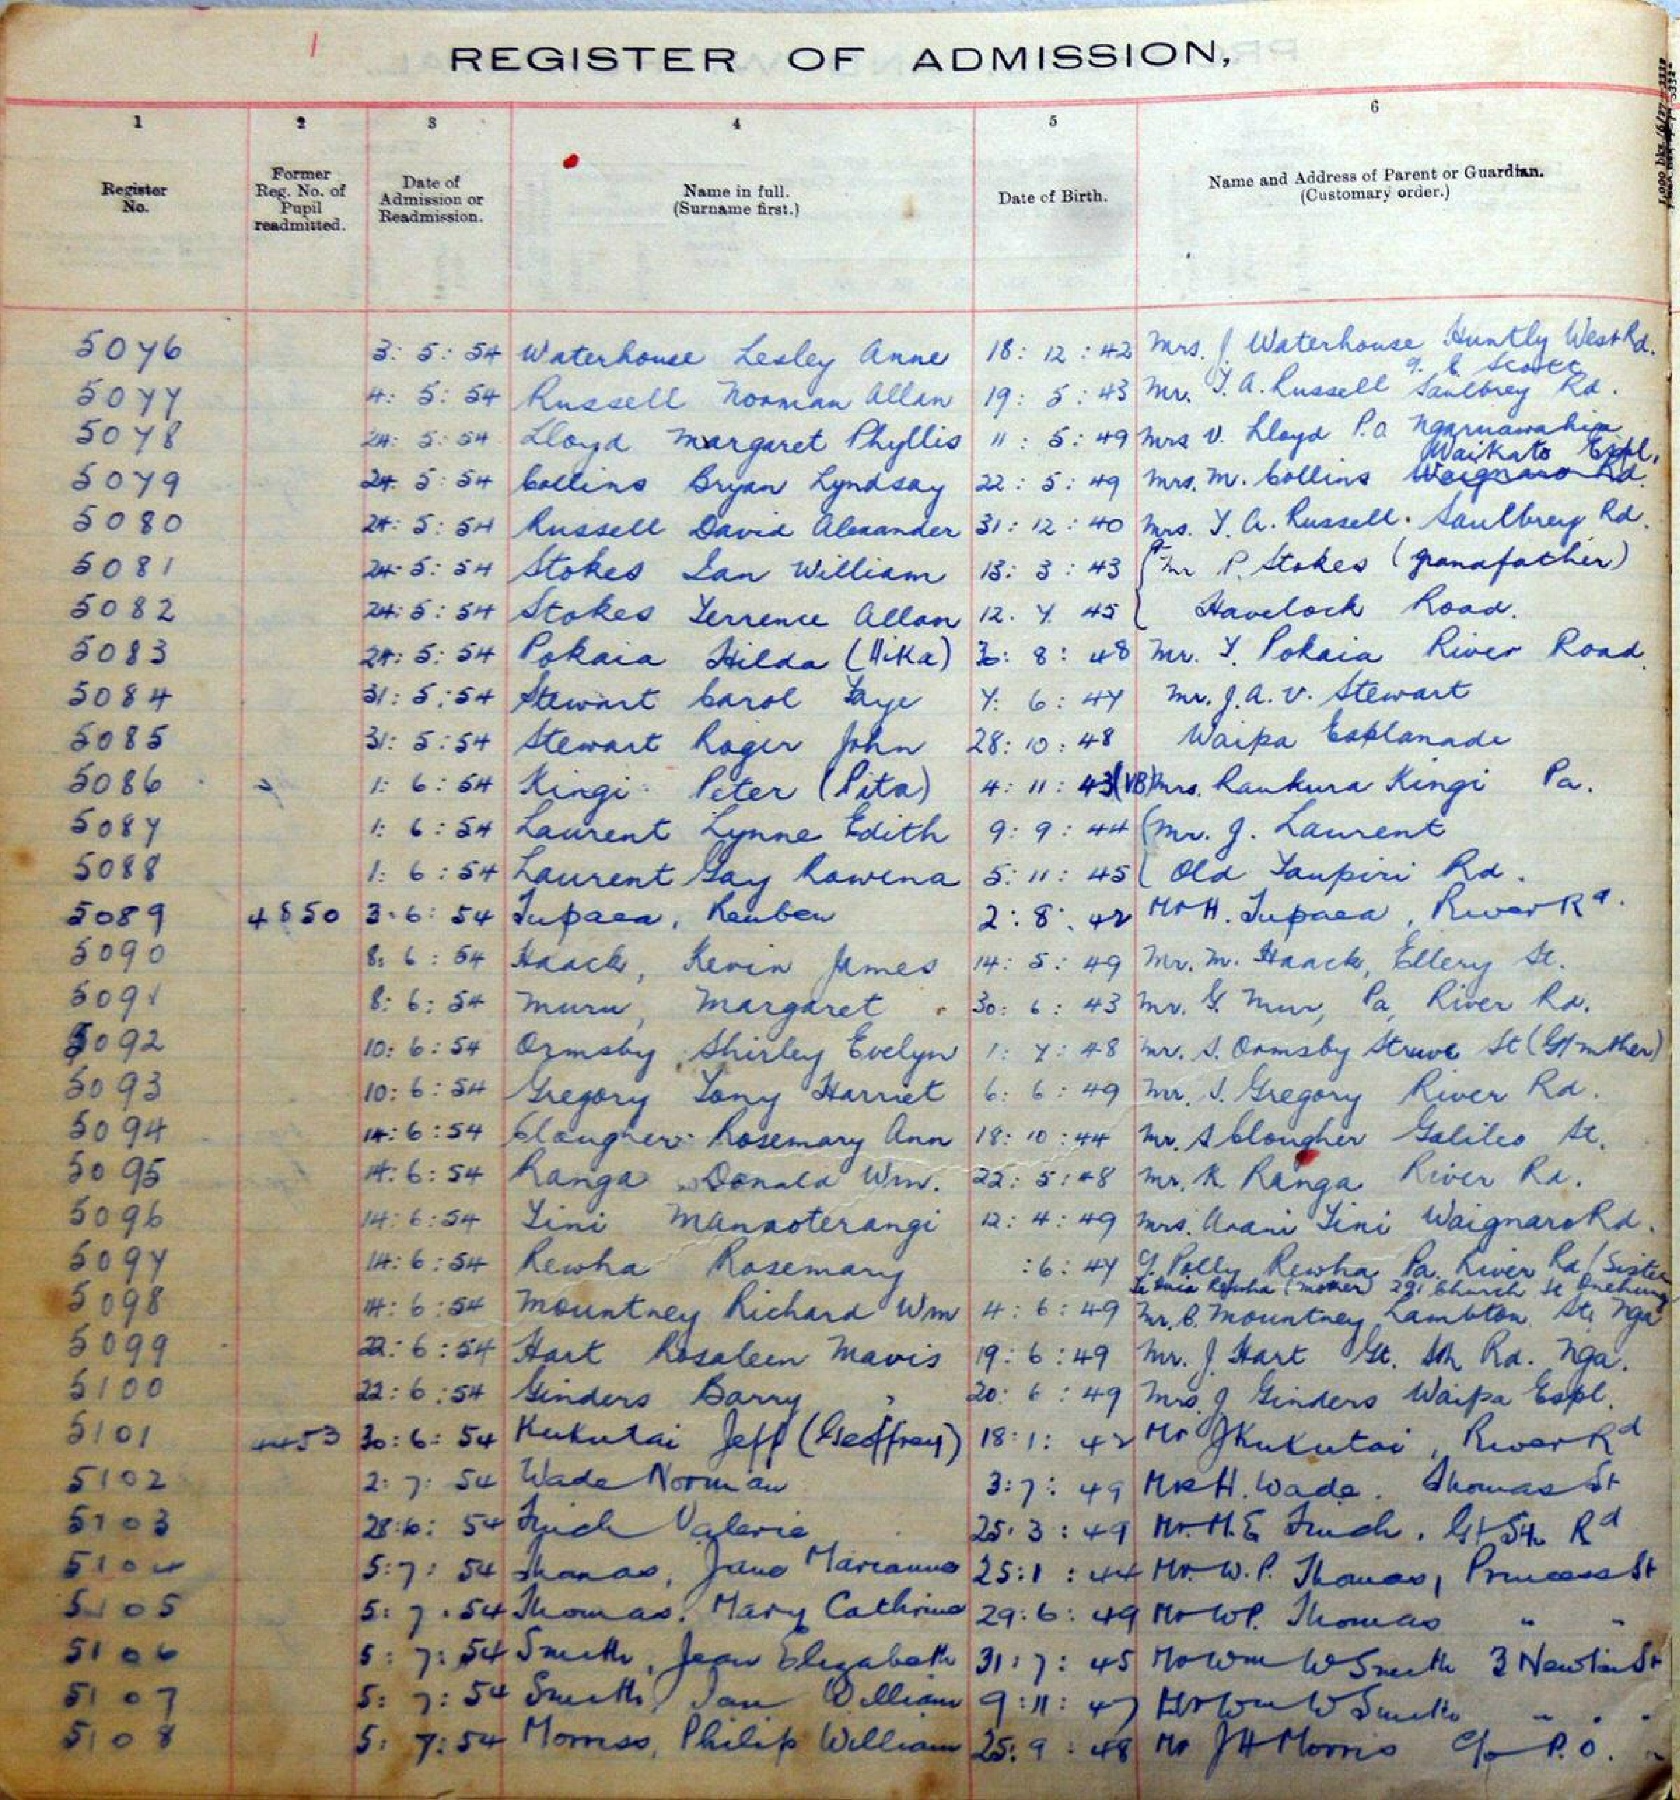 REGISTER OF ADMISSION,
1 2 3 4 5 6
Register No. Former Reg. No. of Pupil readmitted. Date of Admission or Readmission. Name in full. (Surname first.) Date of Birth. Name and Address of Parent or Guardian. (Customary order.)
5076 3: 5: 54 Waterhouse Lesley Anne 18: 12: 42 Mrs. J Waterhouse Huntly West Rd.
Scott
5077 4: 5: 54 Russell Norman Allan 19: 5: 43 Mr. T. A. Russell Saulbrey Rd.
5078 24: 5: 54 Lloyd Margaret Phyllis 11: 5: 49 Mrs V. Lloyd P.O Ngaruawahia
Waikato Espl.
5079 24: 5: 54 Collins Bryan Lyndsay 22: 5: 49 Mrs. M. Collins Waignaro Rd.
5080 24: 5: 54 Russell David Alexander 31: 12: 40 Mrs. T. A. Russell. Saulbrey Rd.
5081 24: 5: 54 Stokes Ian William 13: 3: 43 Mr P. Stokes (grandfather)
5082 24: 5: 54 Stokes Terrence Allan 12. 7. 45 Havelock Road.
5083 24: 5: 54 Pokaia Hilda (Hika) 30: 8: 48 Mr. T. Pokaia River Road
5084 31: 5: 54 Stewart Carol Faye 7: 6: 47 Mr. J. A. V. Stewart
5085 31: 5: 54 Stewart Roger John 28: 10: 48 Waipa Esplanade
5086 1: 6: 54 Kingi Peter (Pita) 4: 11: 43 (VB) Mrs. Raukura Kingi Pa.
5087 1: 6: 54 Laurent Lynne Edith 9: 9: 44 (Mr. J. Laurent
5088 1: 6: 54 Laurent Gay Rowena 5: 11: 45 ( Old Taupiri Rd.
5089 4850 3. 6: 54 Tupaea, Reuben 2: 8: 42 Mr H. Tupaea, River Rd.
5090 8: 6: 54 Haack, Kevin James 14: 5: 49 Mr. M. Haack, Ellery St.
5091 8: 6: 54 Muru, Margaret 30: 6: 43 Mr. G. Muru, Pa, River Rd.
5092 10: 6: 54 Ormsby Shirley Evelyn 1: 7: 48 Mr. S. Ormsby Struve St (G/mother)
5093 10: 6: 54 Gregory Tony Harriet 6: 6: 49 Mr. S. Gregory River Rd.
5094 14: 6: 54 Clougher Rosemary Ann 18: 10: 44 Mr. S Clougher Galileo St.
5095 14: 6: 54 Ranga Donald Wm. 22: 5: 48 Mr. K Ranga River Rd.
5096 14: 6: 54 Tini Manaoterangi 12: 4: 49 Mrs. Arani Tini Waignaro Rd.
5097 14: 6: 54 Rewha Rosemary : 6: 47 c/ Polly Rewha Pa River Rd (Sister
Rewha (mother) 291 Church St Onehunga
5098 14: 6: 54 Mountney Richard Wm 4: 6: 49 Mr. C. Mountney Lambton St, Nga
5099 22: 6: 54 Hart Rosaleen Mavis 19: 6: 49 Mr. J Hart Gt. Sth Rd. Nga.
5100 22: 6: 54 Ginders Barry 20: 6: 49 Mrs J Ginders Waipa Espl.
5101 4453 30: 6: 54 Kukutai Jeff (Geoffrey) 18: 1: 42 Mr J Kukutai, River Rd
5102 2: 7: 54 Wade Norman 3: 7: 49 Mr H. Wade. Thomas St
5103 28: 6: 54 Finch Valerie 25: 3: 49 Mr. H. E Finch. Gt Sth Rd
5104 5: 7: 54 Thomas, Jane Marianne 25: 1: 44 Mr. W. P. Thomas, Princess St
5105 5: 7: 54 Thomas, Mary Cathrine 29: 6: 49 Mr W P. Thomas " "
5106 5: 7: 54 Smith, Jean Elizabeth 31: 7: 45 Mr Wm W Smith 3 Newton St
5107 5: 7: 54 Smith, Ian William 9: 11: 47 Mr Wm W Smith " "
5108 5: 7: 54 Morriss, Philip William 25: 9: 48 Mr J H Morris c/o P.O.